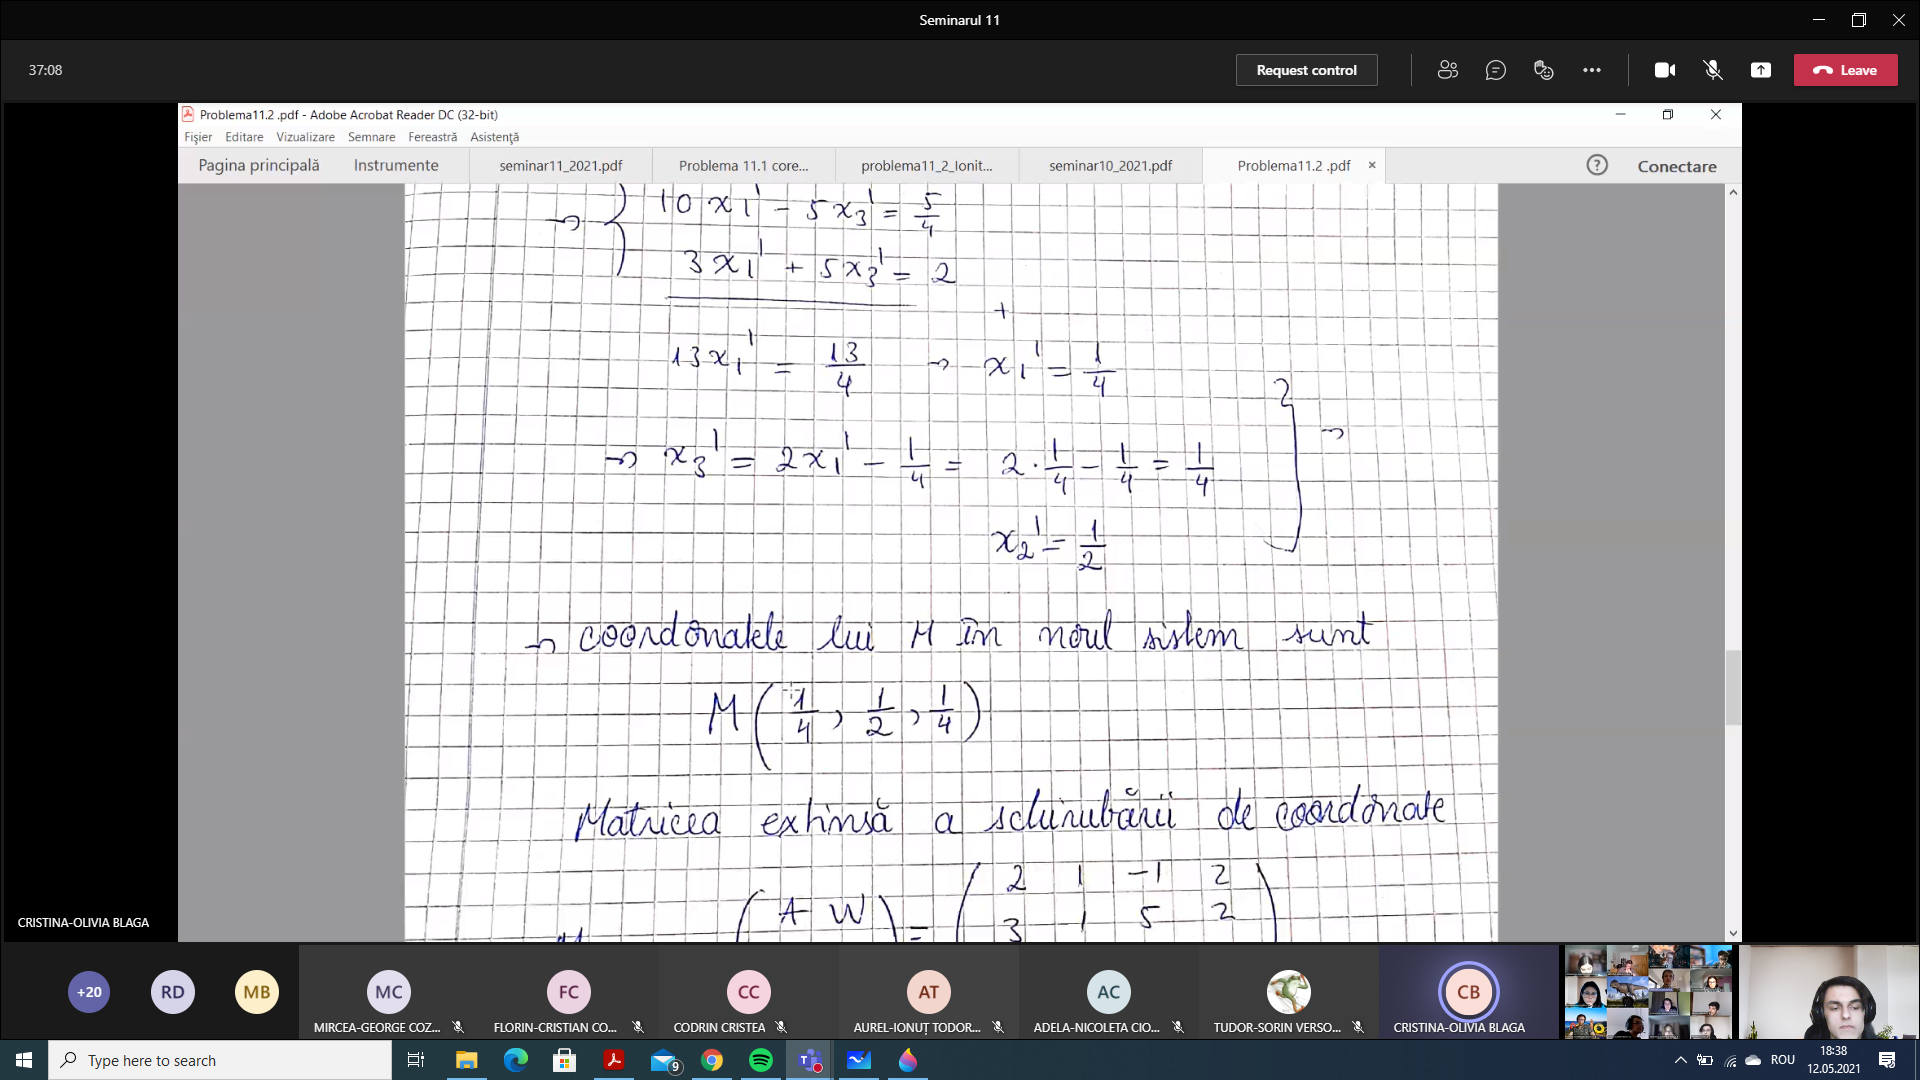 Seminarul 11
37:08
Request control
Leave
Problema11.2 .pdf - Adobe Acrobat Reader DC (32-bit)
Fișier Editare Vizualizare Semnare Fereastră Asistență
Pagina principală Instrumente seminar11_2021.pdf Problema 11.1 core... problema11_2_Ionit... seminar10_2021.pdf Problema11.2 .pdf × ? Conectare
→ { 10x₁' - 5x₃' = 5/4
3x₁' + 5x₃' = 2
+
13x₁' = 13/4 → x₁' = 1/4
→ x₃' = 2x₁' - 1/4 = 2 · 1/4 - 1/4 = 1/4 } →
x₂' = 1/2
→ coordonatele lui M în noul sistem sunt
M(1/4, 1/2, 1/4)
Matricea extinsă a schimbării de coordonate
( A W ) = ( 2 1 -1 2
3 1 5 2
CRISTINA-OLIVIA BLAGA
+20 RD MB MC FC CC AT AC CB
MIRCEA-GEORGE COZ... FLORIN-CRISTIAN CO... CODRIN CRISTEA AUREL-IONUȚ TODOR... ADELA-NICOLETA CIO... TUDOR-SORIN VERSO... CRISTINA-OLIVIA BLAGA
Type here to search
9
ROU
18:38
12.05.2021